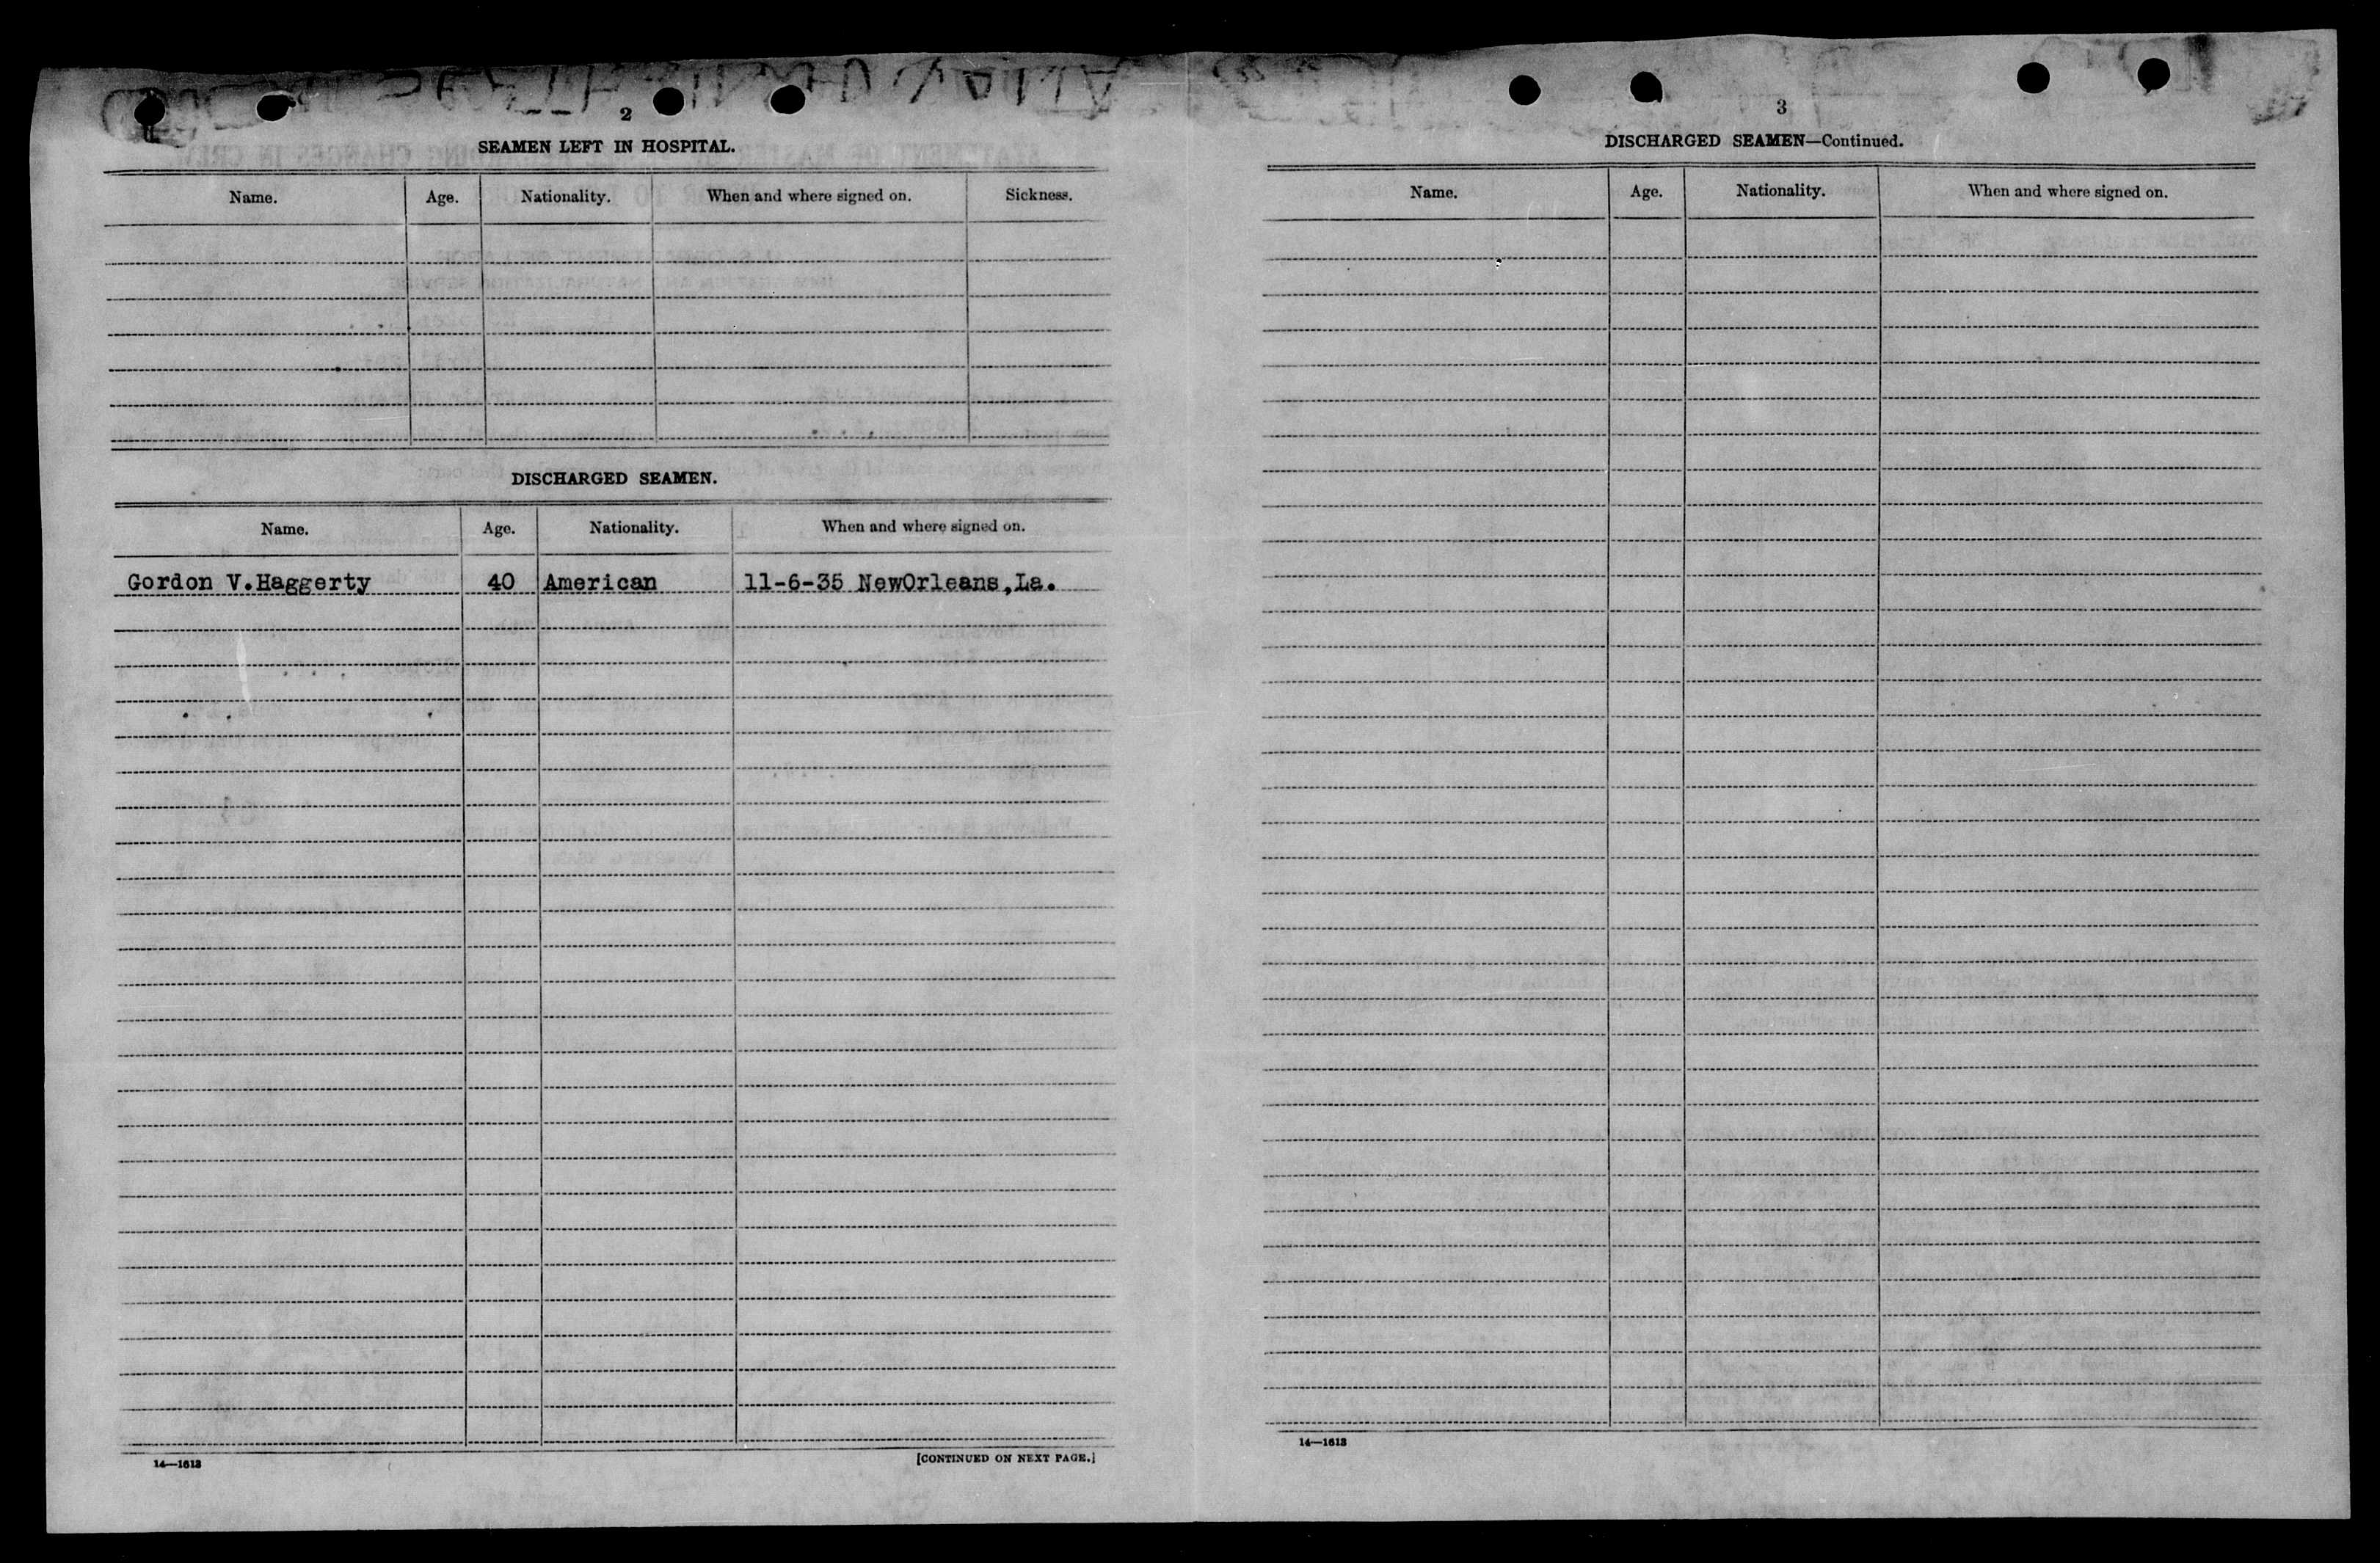 2
SEAMEN LEFT IN HOSPITAL.
Name. Age. Nationality. When and where signed on. Sickness.
DISCHARGED SEAMEN.
Name. Age. Nationality. When and where signed on.
Gordon V.Haggerty 40 American 11-6-35 NewOrleans,La.
14—1613
[CONTINUED ON NEXT PAGE.]
3
DISCHARGED SEAMEN—Continued.
Name. Age. Nationality. When and where signed on.
14—1613